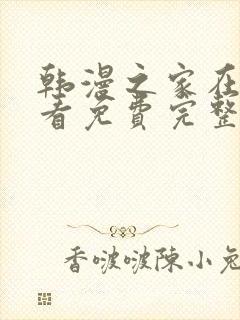 韩漫之家在
看免费完整
香啵啵陳小兔